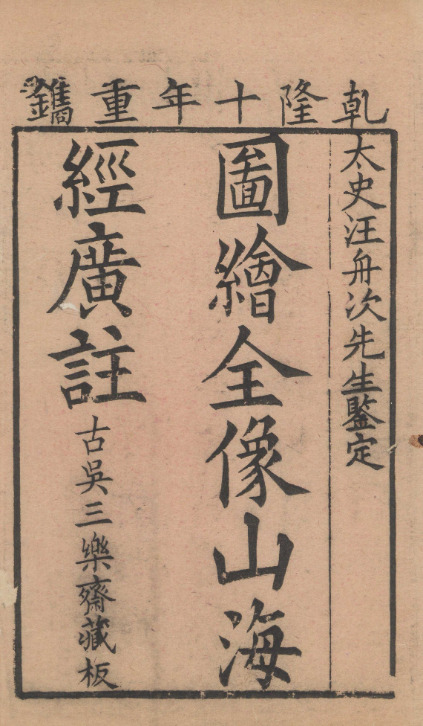 乾隆十年重鐫
太史汪舟次先生鑒定
圖繪全像山海
經廣註
古吳三樂齋藏板